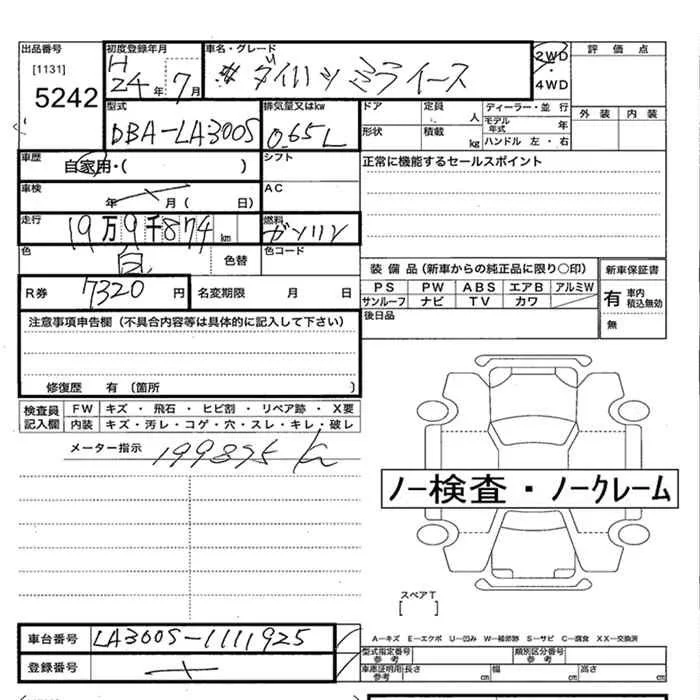 出品番号 初度登録年月 車名・グレード 2WD 評価点
[1131] H
5242 24年 7月 ダイハツ ミライース ・ 4WD
型式 排気量又はkw ドア 定員 人 ディーラー・並 行 外装 内装
DBA-LA300S 0.65L 形状 積載 kg モデル年式 年 ハンドル 左・右
車歴 自家用・( ) シフト 正常に機能するセールスポイント
車検 年 月( 日) AC
走行 19万9千874km 燃料 ガソリン
色 白 色替 色コード 装備品(新車からの純正品に限り○印) 新車保証書
R券 7320円 名変期限 月 日 PS PW ABS エアB アルミW 有 車内積込無効
サンルーフ ナビ TV カワ
後日品 無
注意事項申告欄(不具合内容等は具体的に記入して下さい)
修復歴 有〔箇所 〕
検査員記入欄 FW キズ・飛石・ヒビ割・リペア跡・X要
内装 キズ・汚レ・コゲ・穴・スレ・キレ・破レ
メーター指示 199875 K
ノー検査・ノークレーム
スペアT
[ ]
車台番号 LA300S-1111925 A-キズ E-エクボ U-凹み W-補修跡 S-サビ C-腐食 XX-交換済
型式指定番号 参考 類別区分番号 参考
登録番号 車庫証明用参考 長さ cm 幅 cm 高さ cm